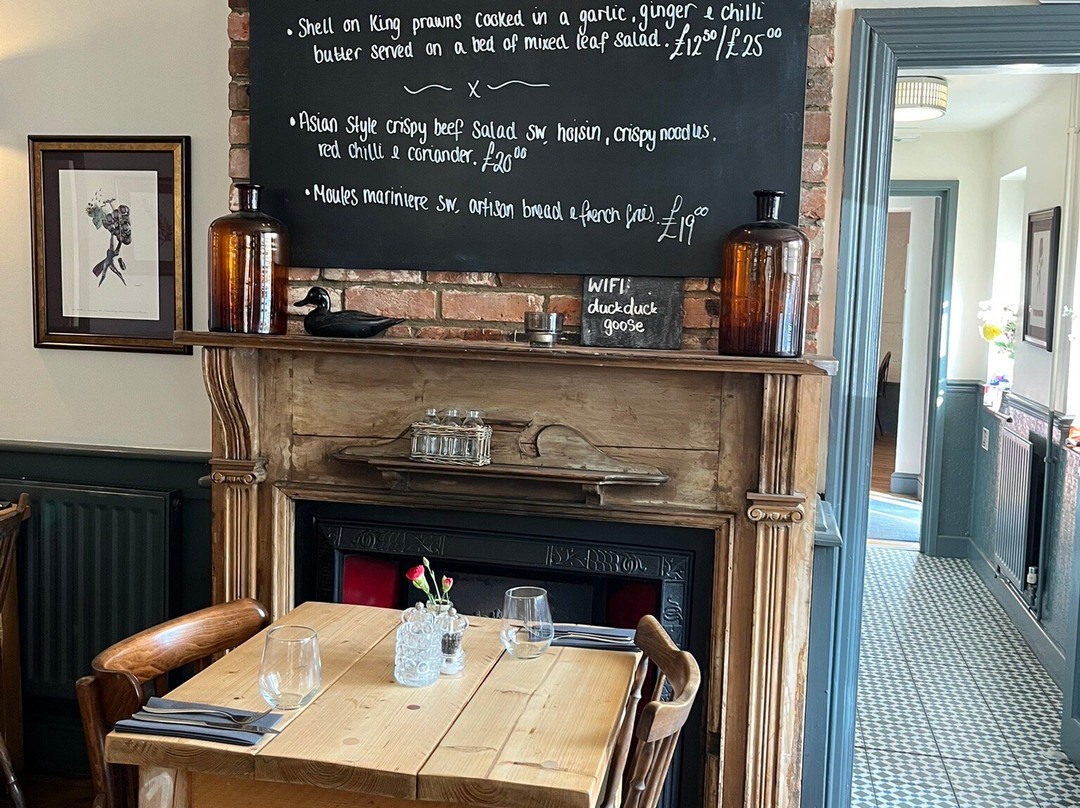 • Shell on King prawns cooked in a garlic, ginger & chilli
butter served on a bed of mixed leaf salad. £12⁵⁰/£25⁰⁰
x
• Asian Style crispy beef Salad sw, hoisin, crispy noodles,
red chilli & coriander. £20⁰⁰
• Moules mariniere sw, artisan bread & french fries. £19⁰⁰
WIFI:
duckduck
goose